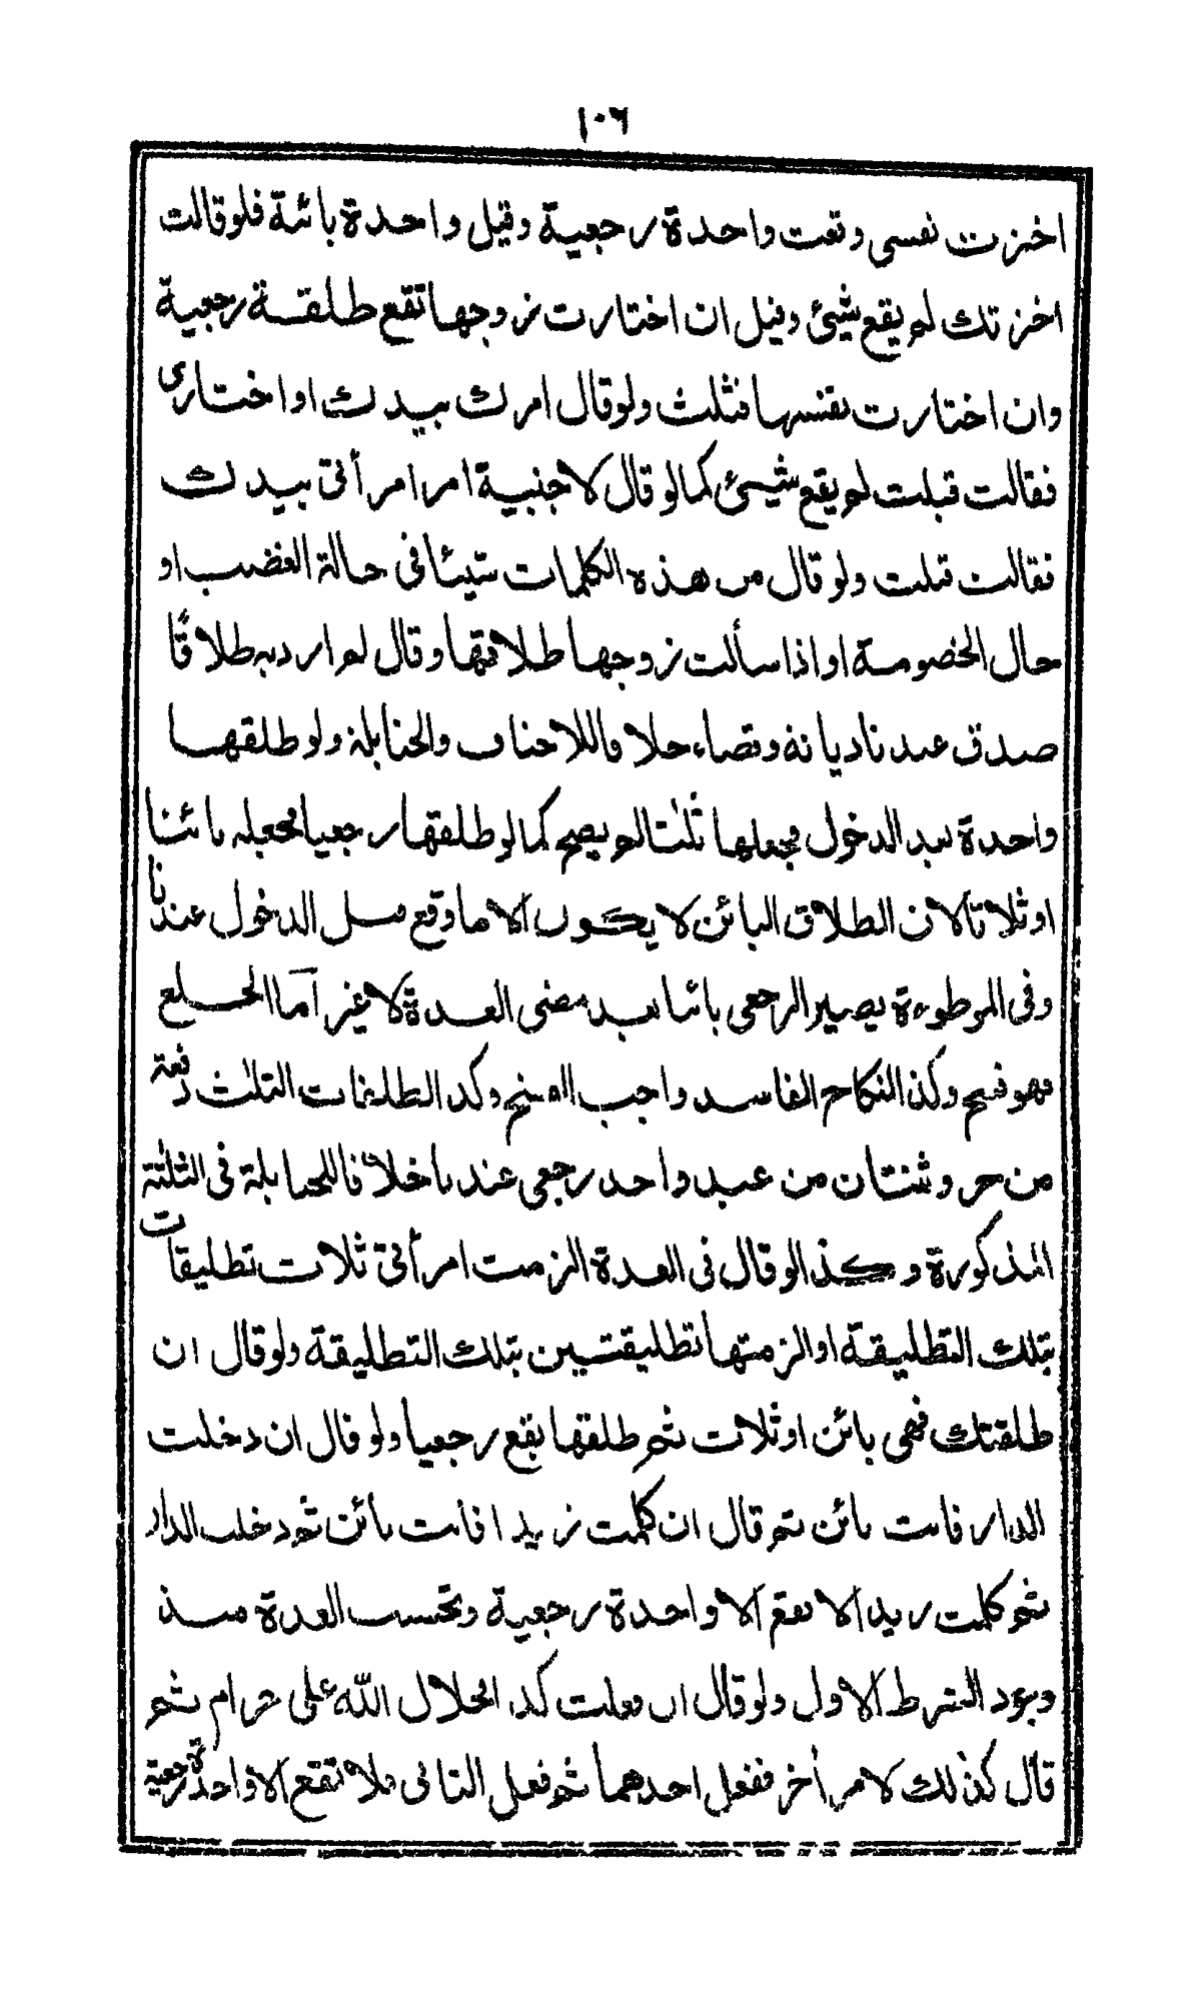 ١٠٦
اخترت نفسى وقعت واحدة رجعية وقيل واحدة بائنة فلو قالت
اخترتك لم يقع شيئ وقيل ان اختارت زوجها تقع طلقة رجعية
وان اختارت نفسها فثلث ولو قال امرك بيدك او اختارى
فقالت قبلت لم يقع شيئ كما لو قال لاجنبية امر امرأتى بيدك
فقالت قبلت ولو قال من هذه الكلمات شيئا فى حالة الغضب او
حال الخصومة او اذا سألت زوجها طلاقها وقال لم ارد به طلاقًا
صدق عندنا ديانة وقضاء خلافا للاحناف والحنابلة ولو طلقها
واحدة بعد الدخول فجعلها ثلثا لم يصح كما لو طلقها رجعيا فجعله بائنا
او ثلاثا لان الطلاق البائن لا يكون الا ما وقع قبل الدخول عندنا
وفى الموطوءة يصير الرجعى بائنا بعد مضى العدة لا غير أما الخلع
فهو فسخ وكذ النكاح الفاسد واجب الفسخ وكذ الطلقات الثلث دفعة
من حر وثنتان من عبد واحد رجعى عندنا خلافا للحنابلة فى الثلثة
المذكورة وكذ لو قال فى العدة الزمت امرأتى ثلاث تطليقات
بتلك التطليقة او الزمتها تطليقتين بتلك التطليقة ولو قال ان
طلقتك فهى بائن او ثلاث ثم طلقها يقع رجعيا ولو قال ان دخلت
الدار فانت بائن ثم قال ان كلمت زيدا فانت بائن ثم دخلت الدار
ثم كلمت زيدا لا تقع الا واحدة رجعية وتحسب العدة منذ
وجود الشرط الاول ولو قال ان فعلت كذا فحلال الله على حرام ثم
قال كذلك لامر أخر ففعل احدهما ثم فعل الثانى فلا تقع الا واحدة رجعية